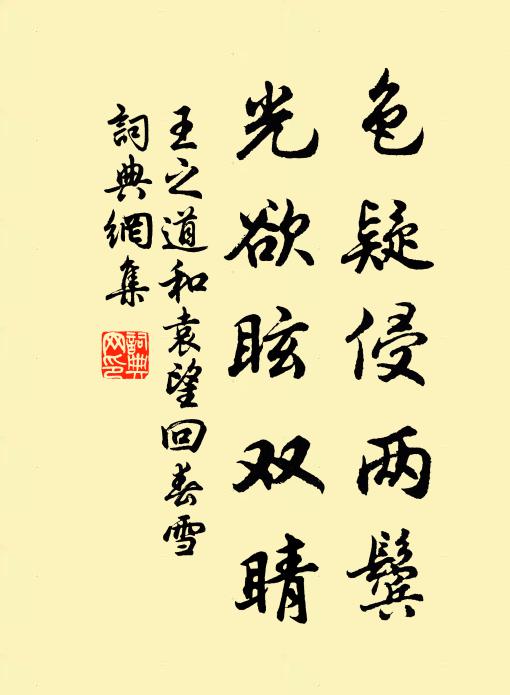 色疑侵两鬓
光欲眩双睛
王之道和袁望回春雪
詞典網集
詞典网印